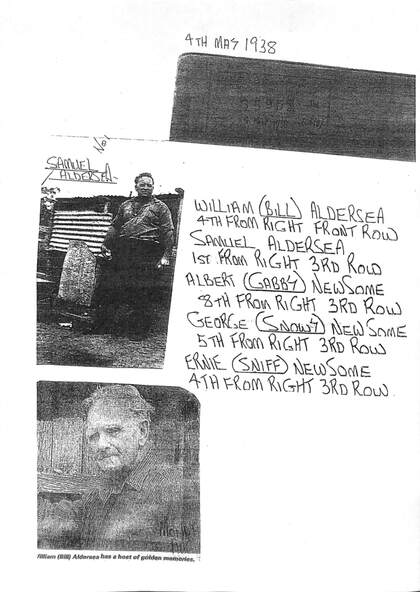 4TH MAY 1938
No 1
SAMUEL
ALDERSEA
WILLIAM (BILL) ALDERSEA
4TH FROM RIGHT FRONT ROW
SAMUEL ALDERSEA
1ST FROM RIGHT 3RD ROW
ALBERT (GABBY) NEWSOME
8TH FROM RIGHT 3RD ROW
GEORGE (SNOWY) NEWSOME
5TH FROM RIGHT 3RD ROW
ERNIE (SNIFF) NEWSOME
4TH FROM RIGHT 3RD ROW.
illiam (Bill) Aldersea has a host of golden memories.